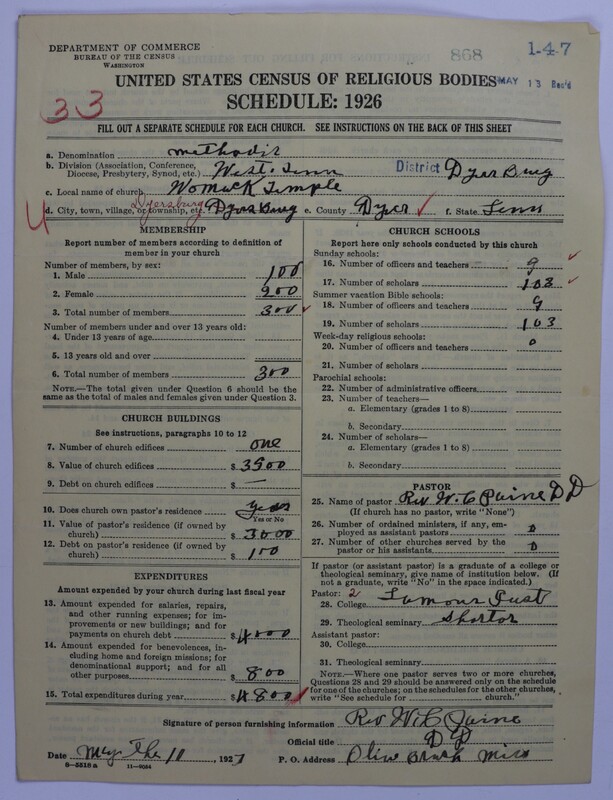 DEPARTMENT OF COMMERCE
BUREAU OF THE CENSUS
WASHINGTON
868
1-47
MAY 13 Rec'd
UNITED STATES CENSUS OF RELIGIOUS BODIES
SCHEDULE: 1926
33
FILL OUT A SEPARATE SCHEDULE FOR EACH CHURCH. SEE INSTRUCTIONS ON THE BACK OF THIS SHEET
a. Denomination Methodis
b. Division (Association, Conference, Diocese, Presbytery, Synod, etc.) West. Tenn District Dyer Burg
c. Local name of church Womack Temple
d. City, town, village, or township, etc. Dyersburg Dyers Burg e. County Dyer f. State Tenn
MEMBERSHIP
Report number of members according to definition of member in your church
Number of members, by sex:
1. Male 100
2. Female 200
3. Total number of members 300
Number of members under and over 13 years old:
4. Under 13 years of age
5. 13 years old and over
6. Total number of members 300
NOTE.—The total given under Question 6 should be the same as the total of males and females given under Question 3.
CHURCH BUILDINGS
See instructions, paragraphs 10 to 12
7. Number of church edifices one
8. Value of church edifices $ 3500
9. Debt on church edifices $ —
10. Does church own pastor's residence yes
Yes or No
11. Value of pastor's residence (if owned by church) $ 3000
12. Debt on pastor's residence (if owned by church) $ 100
EXPENDITURES
Amount expended by your church during last fiscal year
13. Amount expended for salaries, repairs, and other running expenses; for improvements or new buildings; and for payments on church debt $ 4000
14. Amount expended for benevolences, including home and foreign missions; for denominational support; and for all other purposes $ 800
15. Total expenditures during year $ 4800
CHURCH SCHOOLS
Report here only schools conducted by this church
Sunday schools:
16. Number of officers and teachers 9
17. Number of scholars 103
Summer vacation Bible schools:
18. Number of officers and teachers 9
19. Number of scholars 103
Week-day religious schools:
20. Number of officers and teachers 0
21. Number of scholars
Parochial schools:
22. Number of administrative officers
23. Number of teachers—
a. Elementary (grades 1 to 8)
b. Secondary
24. Number of scholars—
a. Elementary (grades 1 to 8)
b. Secondary
PASTOR
25. Name of pastor Rev. W. C. Paine D D
(If church has no pastor, write "None")
26. Number of ordained ministers, if any, employed as assistant pastors 0
27. Number of other churches served by the pastor or his assistants 0
If pastor (or assistant pastor) is a graduate of a college or theological seminary, give name of institution below. (If not a graduate, write "No" in the space indicated.)
Pastor: 2
28. College
29. Theological seminary Shorter
Assistant pastor:
30. College
31. Theological seminary
NOTE.—Where one pastor serves two or more churches, Questions 28 and 29 should be answered only on the schedule for one of the churches; on the schedules for the other churches, write "See schedule for church."
Signature of person furnishing information Rev W. C. Paine
Official title D D
Date May the 10, 1927 P. O. Address Olive Branch Miss
8-5518 a 11-9084